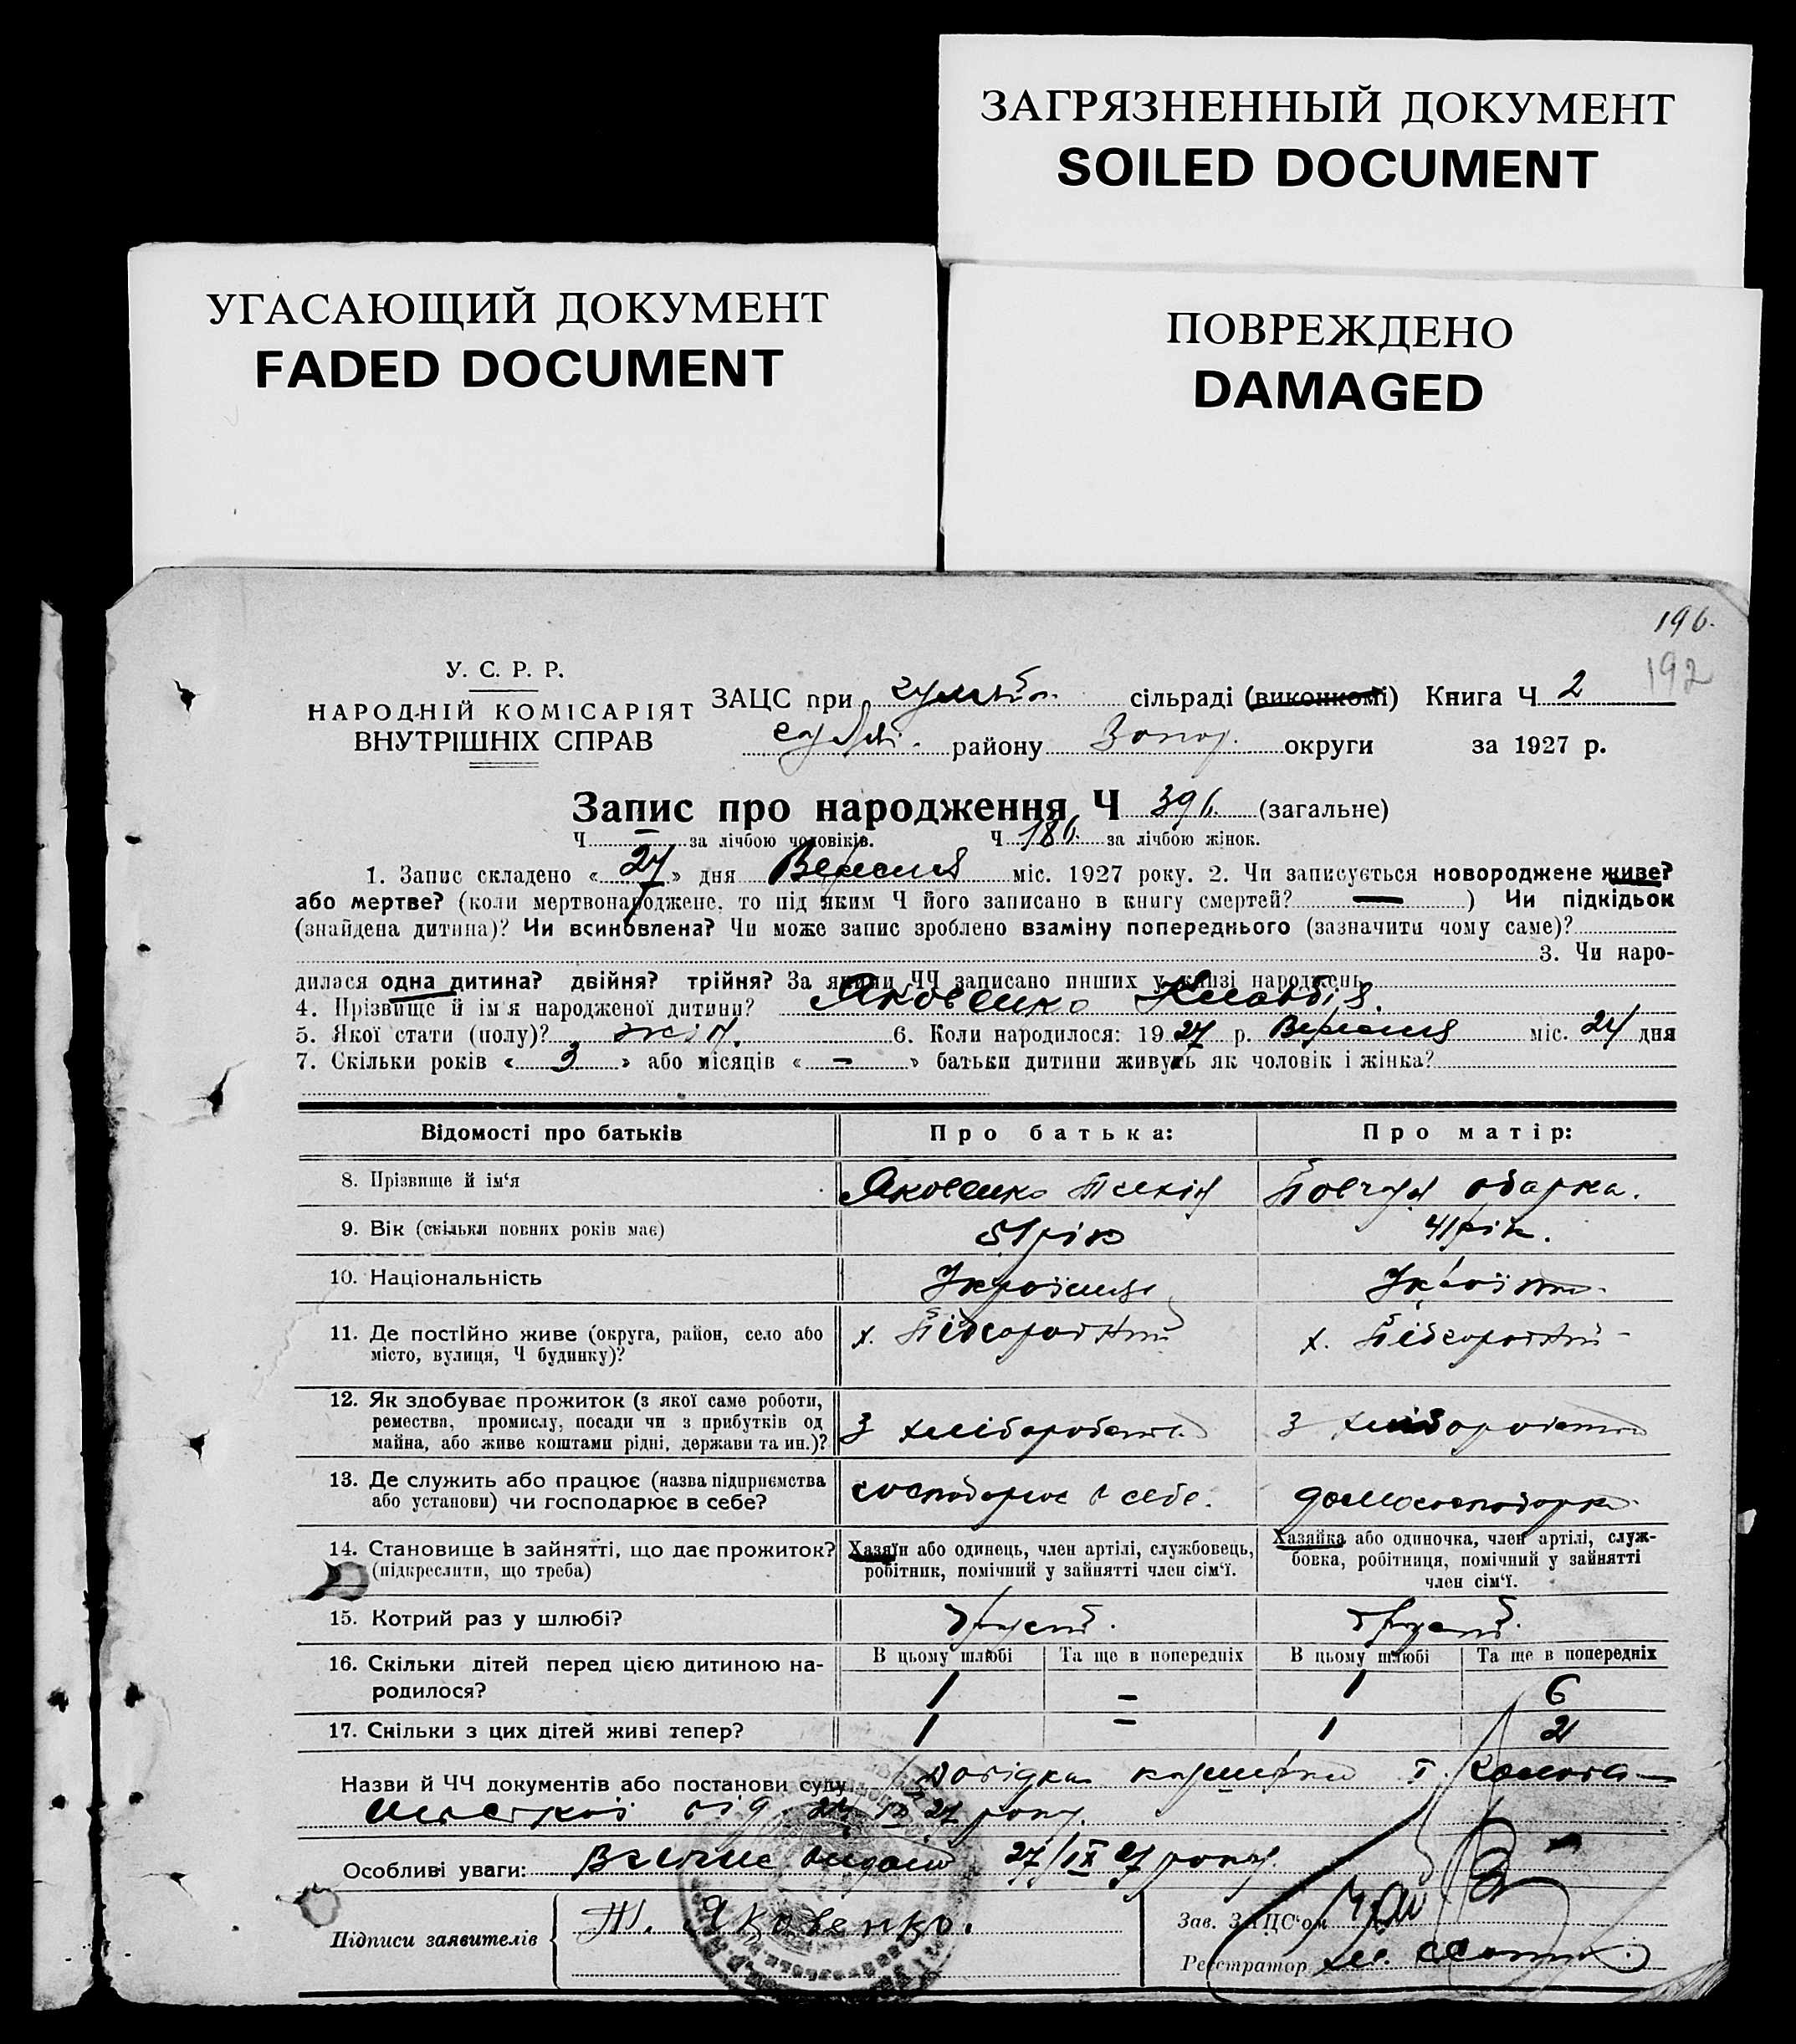 ЗАГРЯЗНЕННЫЙ ДОКУМЕНТ
SOILED DOCUMENT
УГАСАЮЩИЙ ДОКУМЕНТ
FADED DOCUMENT
ПОВРЕЖДЕНО
DAMAGED
196.
192
У. С. Р. Р.
НАРОДНІЙ КОМІСАРІЯТ
ВНУТРІШНІХ СПРАВ
ЗАЦС при сільраді (виконкомі) Книга Ч 2
району Запор. округи за 1927 р.
Запис про народження Ч 396. (загальне)
Ч — за лічбою чоловіків. Ч 186. за лічбою жінок.
1. Запис складено «27» дня Вересня міс. 1927 року. 2. Чи записується новороджене живе?
або мертве? (коли мертвонароджене, то під яким Ч його записано в книгу смертей? — ) Чи підкідьок
(знайдена дитина)? Чи всиновлена? Чи може запис зроблено взаміну попереднього (зазначити чому саме)?
3. Чи наро-
дилася одна дитина? двійня? трійня? За якими ЧЧ записано инших у книзі народжень
4. Прізвище й ім'я народженої дитини? Яковенко Клавдія.
5. Якої стати (полу)? жін. 6. Коли народилося: 1927 р. Вересня міс. 24 дня
7. Скільки років « 3 » або місяців « – » батьки дитини живуть як чоловік і жінка?
Відомості про батьків Про батька: Про матір:
8. Прізвище й ім'я Яковенко Одарка.
9. Вік (скільки повних років має) 51 рік 41 рік.
10. Національність Українець Українка
11. Де постійно живе (округа, район, село або
місто, вулиця, Ч будинку)? х. Підгородній х. Підгородній
12. Як здобуває прожиток (з якої саме роботи,
ремества, промислу, посади чи з прибутків од
майна, або живе коштами рідні, держави та ин.)? З хліборобства З хліборобства
13. Де служить або працює (назва підприємства
або установи) чи господарює в себе? господарює в себе. домогосподарка
14. Становище в зайнятті, що дає прожиток?
(підкреслити, що треба)
Хазяїн або одинець, член артілі, службовець,
робітник, помічний у зайнятті член сім'ї.
Хазяйка або одиночка, член артілі, служ-
бовка, робітниця, помічний у зайнятті
член сім'ї.
15. Котрий раз у шлюбі? другий. другий.
16. Скільки дітей перед цією дитиною на-
родилося?
В цьому шлюбі Та ще в попередніх В цьому шлюбі Та ще в попередніх
1 – 1 6
17. Скільки з цих дітей живі тепер? 1 – 1 2
Назви й ЧЧ документів або постанови суду Довідка
від 27 IX 27 року.
Особливі уваги: видано 27/IX 27 року.
Підписи заявителів Яковенко.
Зав. ЗАЦС'ом
Реєстратор